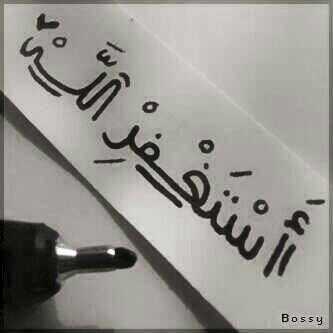 أَسْتَغْفِرُ اللهَ
Bossy